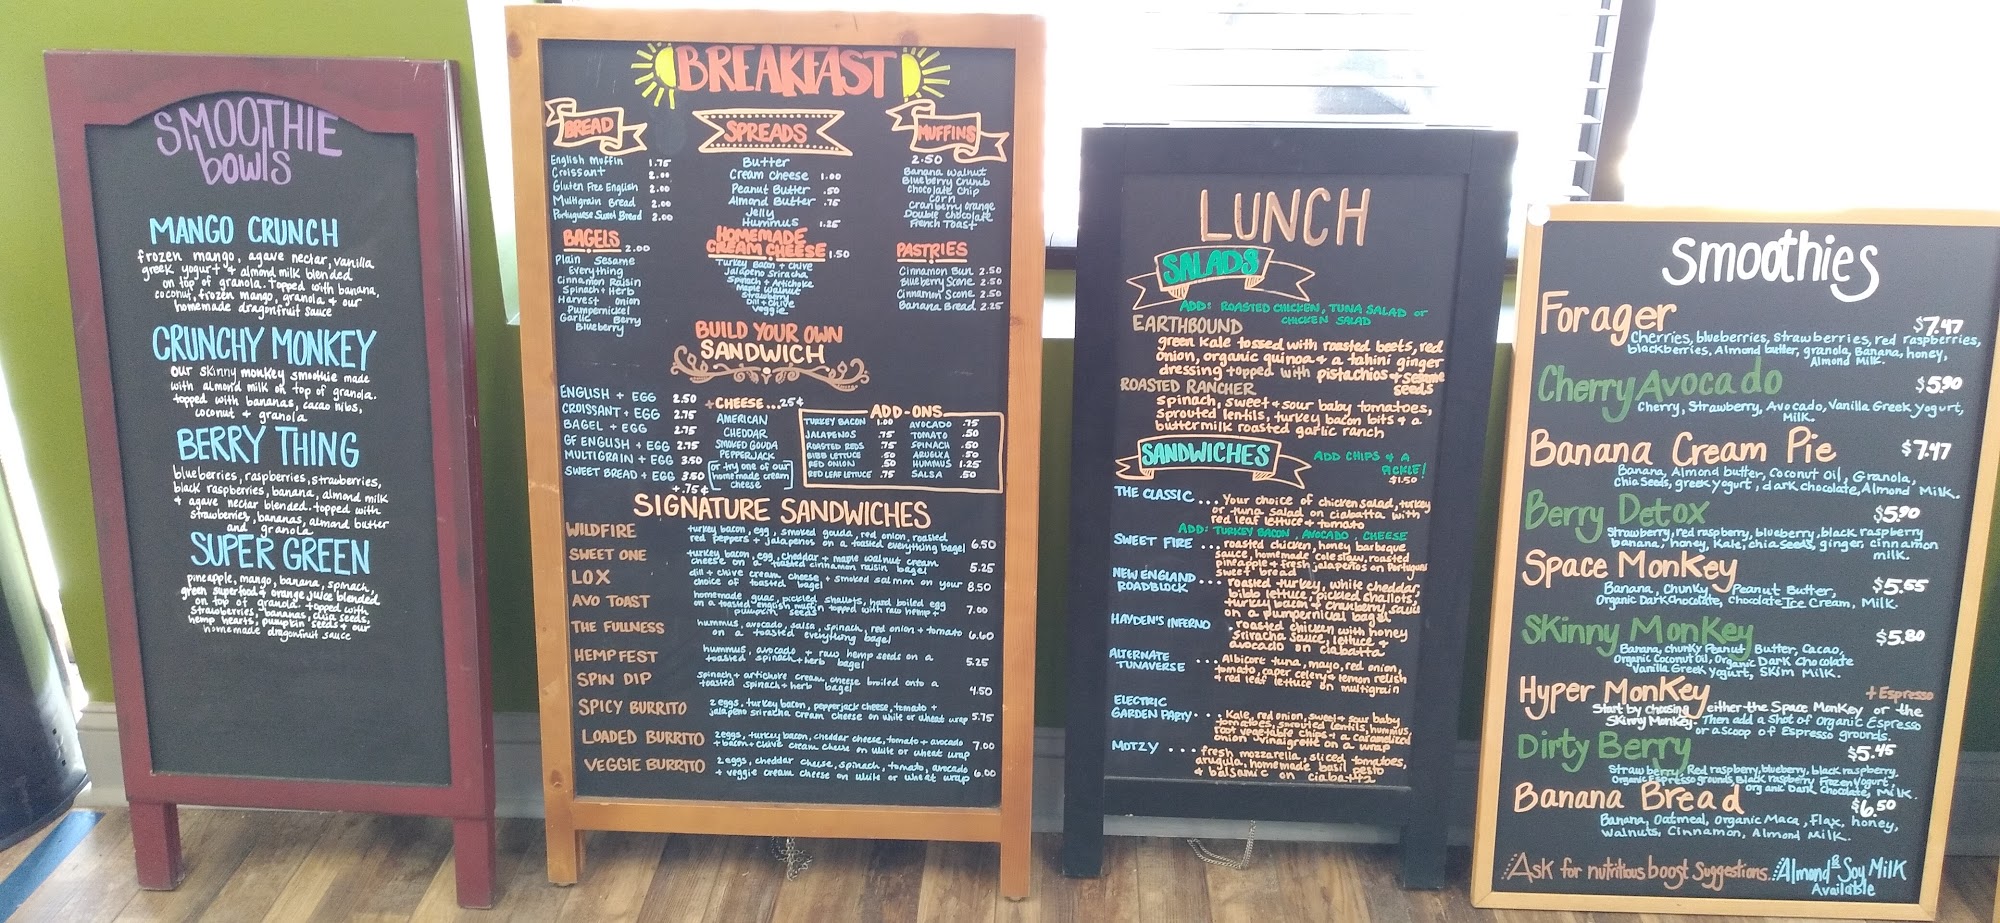 SMOOTHIE
bowls
MANGO CRUNCH
frozen mango, agave nectar, vanilla
greek yogurt + almond milk blended
on top of granola. topped with banana,
coconut, frozen mango, granola + our
homemade dragonfruit sauce
CRUNCHY MONKEY
our skinny monkey smoothie made
with almond milk on top of granola.
topped with bananas, cacao nibs,
coconut + granola
BERRY THING
blueberries, raspberries, strawberries,
black raspberries, banana, almond milk
+ agave nectar blended. topped with
strawberries, bananas, almond butter
and granola
SUPER GREEN
pineapple, mango, banana, spinach,
green superfood + orange juice blended
on top of granola. topped with
strawberries, bananas, chia seeds,
hemp hearts, pumpkin seeds + our
homemade dragonfruit sauce
BREAKFAST
BREAD
English Muffin 1.75
Croissant 2.00
Gluten Free English 2.00
Multigrain Bread 2.00
Portuguese Sweet Bread 2.00
BAGELS 2.00
Plain Sesame
Everything
Cinnamon Raisin
Spinach + Herb
Harvest Onion
Pumpernickel
Garlic Berry
Blueberry
SPREADS
Butter
Cream Cheese 1.00
Peanut Butter .50
Almond Butter .75
Jelly
Hummus 1.25
HOMEMADE
CREAM CHEESE 1.50
Turkey Bacon + Chive
Jalapeno Sriracha
Spinach + Artichoke
Maple Walnut
Strawberry
Dill + Chive
Veggie
MUFFINS
2.50
Banana Walnut
Blueberry Crumb
Chocolate Chip
Corn
Cranberry Orange
Double Chocolate
French Toast
PASTRIES
Cinnamon Bun 2.50
Blueberry Scone 2.50
Cinnamon Scone 2.50
Banana Bread 2.25
BUILD YOUR OWN
SANDWICH
ENGLISH + EGG 2.50
CROISSANT + EGG 2.75
BAGEL + EGG 2.75
GF ENGLISH + EGG 2.75
MULTIGRAIN + EGG 3.50
SWEET BREAD + EGG 3.50
+CHEESE...25¢
AMERICAN
CHEDDAR
SMOKED GOUDA
PEPPERJACK
or try one of our
homemade cream
cheese
+.75¢
ADD-ONS
TURKEY BACON 1.00 AVOCADO .75
JALAPENOS .75 TOMATO .50
ROASTED REDS .75 SPINACH .50
BIBB LETTUCE .50 ARUGULA .50
RED ONION .50 HUMMUS 1.25
RED LEAF LETTUCE .75 SALSA .50
SIGNATURE SANDWICHES
WILDFIRE turkey bacon, egg, smoked gouda, red onion, roasted
red peppers + jalapenos on a toasted everything bagel 6.50
SWEET ONE turkey bacon, egg, cheddar + maple walnut cream
cheese on a toasted cinnamon raisin bagel 5.25
LOX dill + chive cream cheese + smoked salmon on your
choice of toasted bagel 8.50
AVO TOAST homemade guac, pickled shallots, hard boiled egg
on a toasted english muffin topped with raw hemp +
pumpkin seeds 7.00
THE FULLNESS hummus, avocado, salsa, spinach, red onion + tomato
on a toasted everything bagel 6.60
HEMPFEST hummus, avocado + raw hemp seeds on a
toasted spinach + herb bagel 5.25
SPIN DIP spinach + artichoke cream cheese broiled onto a
toasted spinach + herb bagel 4.50
SPICY BURRITO 2 eggs, turkey bacon, pepperjack cheese, tomato +
jalapeno sriracha cream cheese on white or wheat wrap 5.75
LOADED BURRITO 2 eggs, turkey bacon, cheddar cheese, tomato + avocado
+ bacon + chive cream cheese on white or wheat wrap 7.00
VEGGIE BURRITO 2 eggs, cheddar cheese, spinach, tomato, avocado
+ veggie cream cheese on white or wheat wrap 6.00
LUNCH
SALADS
ADD: ROASTED CHICKEN, TUNA SALAD or
CHICKEN SALAD
EARTHBOUND
green kale tossed with roasted beets, red
onion, organic quinoa + a tahini ginger
dressing topped with pistachios + sesame
seeds
ROASTED RANCHER
spinach, sweet + sour baby tomatoes,
sprouted lentils, turkey bacon bits + a
buttermilk roasted garlic ranch
SANDWICHES
ADD CHIPS + A
PICKLE!
$1.50
THE CLASSIC ... Your choice of chicken salad, turkey
or tuna salad on ciabatta with
red leaf lettuce + tomato
ADD: TURKEY BACON, AVOCADO, CHEESE
SWEET FIRE ... roasted chicken, honey barbeque
sauce, homemade coleslaw, roasted
pineapple + fresh jalapeños on Portugues
sweet bread
NEW ENGLAND
ROADBLOCK ... roasted turkey, white cheddar,
bibb lettuce, pickled shallots,
turkey bacon + cranberry sauce
on a pumpernical bagel
HAYDEN'S INFERNO roasted chicken with honey
sriracha sauce, lettuce +
avocado on ciabatta
ALTERNATE
TUNAVERSE ... Albicore tuna, mayo, red onion,
tomato, caper celery + lemon relish
+ red leaf lettuce on multigrain
ELECTRIC
GARDEN PARTY ... Kale, red onion, sweet + sour baby
tomatoes, sprouted lentils, hummus,
root vegetable chips + a caramelized
onion vinaigrette on a wrap
MOTZY ... fresh mozzarella, sliced tomatoes,
arugula, homemade basil pesto
+ balsamic on ciabatta
Smoothies
Forager $7.47
Cherries, blueberries, strawberries, red raspberries,
blackberries, Almond butter, granola, Banana, honey,
Almond Milk.
Cherry Avocado $5.90
Cherry, Strawberry, Avocado, Vanilla Greek Yogurt,
Milk.
Banana Cream Pie $7.47
Banana, Almond butter, Coconut Oil, Granola,
Chia Seeds, greek yogurt, dark chocolate, Almond Milk.
Berry Detox $5.90
Strawberry, red raspberry, blueberry, black raspberry
banana, honey, Kale, chia seeds, ginger, cinnamon
milk.
Space Monkey $5.65
Banana, Chunky Peanut Butter,
Organic Dark Chocolate, Chocolate Ice Cream, Milk.
Skinny Monkey $5.80
Banana, chunky Peanut Butter, Cacao,
Organic Coconut Oil, Organic Dark Chocolate
Vanilla Greek Yogurt, Skim Milk.
Hyper Monkey + Espresso
Start by choosing either the Space Monkey or the
Skinny Monkey. Then add a Shot of Organic Espresso
or a scoop of Espresso grounds.
Dirty Berry $5.45
Strawberry, Red raspberry, blueberry, black raspberry.
Organic Espresso grounds, Black raspberry Frozen Yogurt,
Organic Dark Chocolate, Milk.
Banana Bread $6.50
Banana, Oatmeal, Organic Maca, Flax, honey,
Walnuts, Cinnamon, Almond Milk.
Ask for nutritious boost Suggestions. Almond & Soy Milk
Available